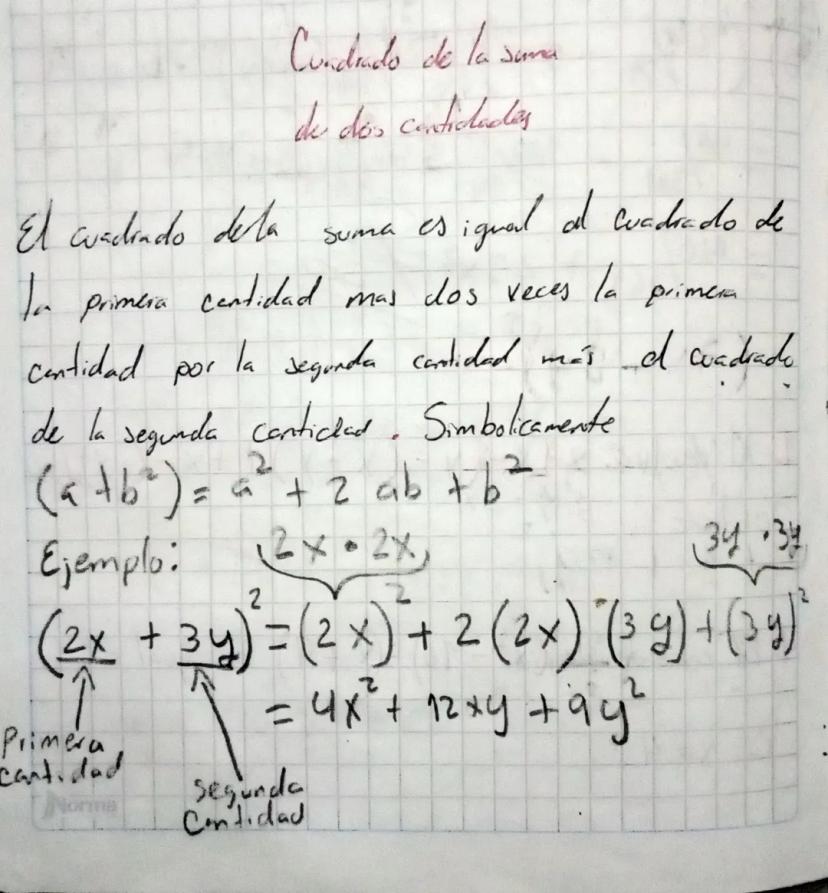 Cuadrado de la suma
de dos cantidades
El cuadrado de la suma es igual al cuadrado de
la primera cantidad mas dos veces la primera
cantidad por la segunda cantidad más el cuadrado
de la segunda cantidad. Simbolicamente
(a+b²) = a² + 2 ab + b²
Ejemplo: 2x • 2x 3y • 3y
(2x + 3y)² = (2x)² + 2(2x) (3y) + (3y)²
= 4x² + 12xy + 9y²
Primera
cantidad
segunda
Cantidad
Norma